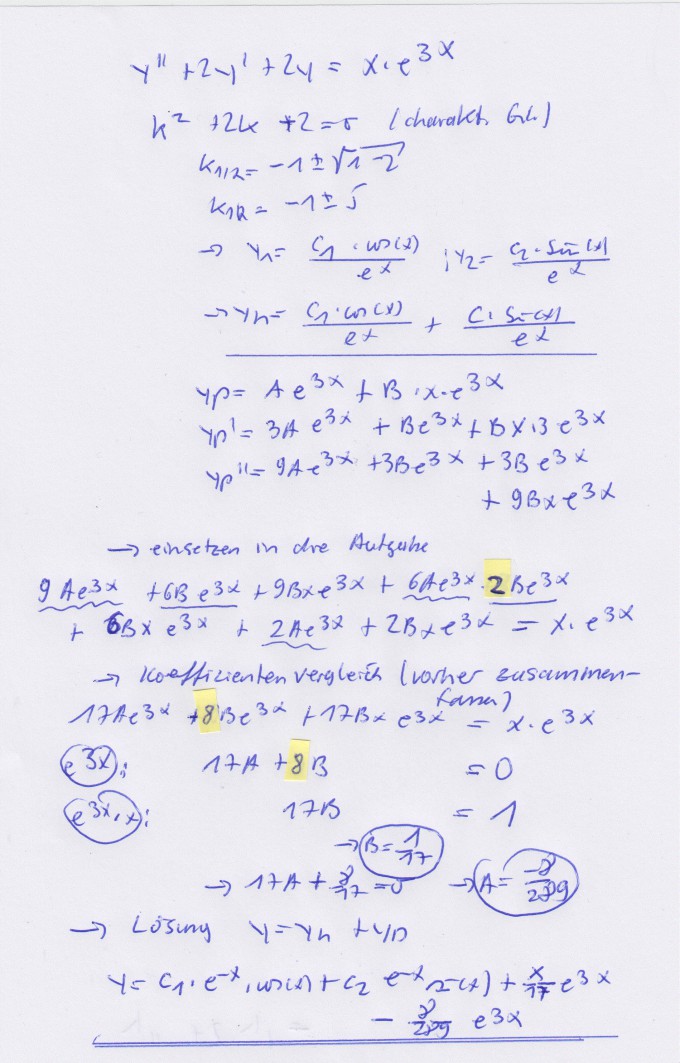 y'' + 2y' + 2y = x · e^3x
k² + 2k + 2 = 0 (charakt. Gl.)
k1/2 = -1 ± √1-2
k1/2 = -1 ± j
→ y1 = C1 · cos(x) / e^x ; y2 = C2 · sin(x) / e^x
→ yh = C1 · cos(x) / e^x + C · sin(x) / e^x
yp = A e^3x + B · x · e^3x
yp' = 3A e^3x + B e^3x + B x · 3 e^3x
yp'' = 9A e^3x + 3B e^3x + 3B e^3x
+ 9Bx e^3x
→ einsetzen in die Aufgabe
9 A e^3x + 6B e^3x + 9Bx e^3x + 6A e^3x · 2 B e^3x
+ 6Bx e^3x + 2A e^3x + 2Bx e^3x = x · e^3x
→ Koeffizientenvergleich (vorher zusammen-
fassen)
17A e^3x + 8B e^3x + 17Bx e^3x = x · e^3x
e^3x: 17A + 8B = 0
e^3x · x: 17B = 1
→ B = 1/17
→ 17A + 8/17 = 0 → A = -8/289
→ Lösung y = yh + yp
y = C1 · e^-x · cos(x) + C2 e^-x sin(x) + x/17 e^3x
- 8/289 e^3x